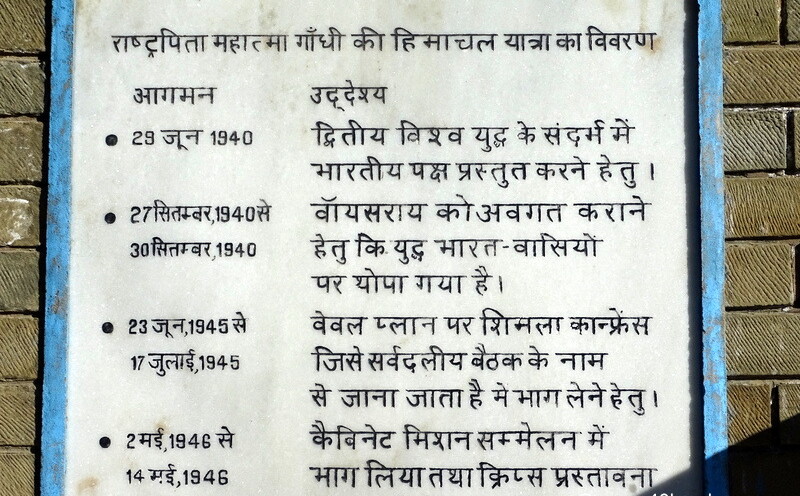 राष्ट्रपिता महात्मा गाँधी की हिमाचल यात्रा का विवरण
आगमन उद्देश्य
• 29 जून 1940 द्वितीय विश्व युद्ध के संदर्भ में
भारतीय पक्ष प्रस्तुत करने हेतु ।
• 27 सितम्बर,1940 से वॉयसराय को अवगत कराने
30 सितम्बर,1940 हेतु कि युद्ध भारत-वासियों
पर थोपा गया है ।
• 23 जून,1945 से वेवल प्लान पर शिमला कान्फ्रेंस
17 जुलाई,1945 जिसे सर्वदलीय बैठक के नाम
से जाना जाता है में भाग लेने हेतु ।
• 2 मई,1946 से कैबिनेट मिशन सम्मेलन में
14 मई,1946 भाग लिया तथा क्रिप्स प्रस्तावना